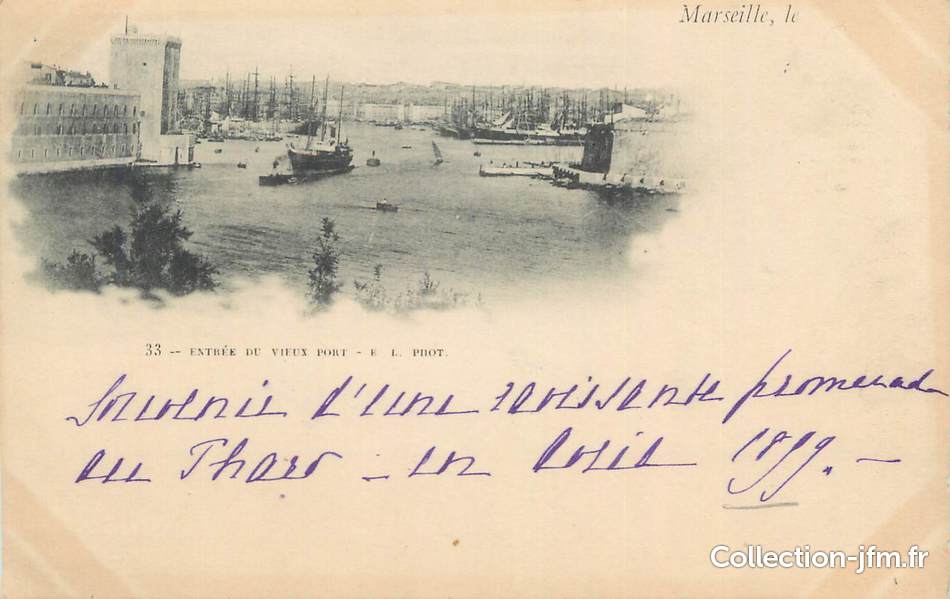 Marseille, le
33 -- ENTRÉE DU VIEUX PORT - E. L. PHOT.
Souvenir d'une ravissante promenade
au Pharo - en 1899. -
Collection-jfm.fr